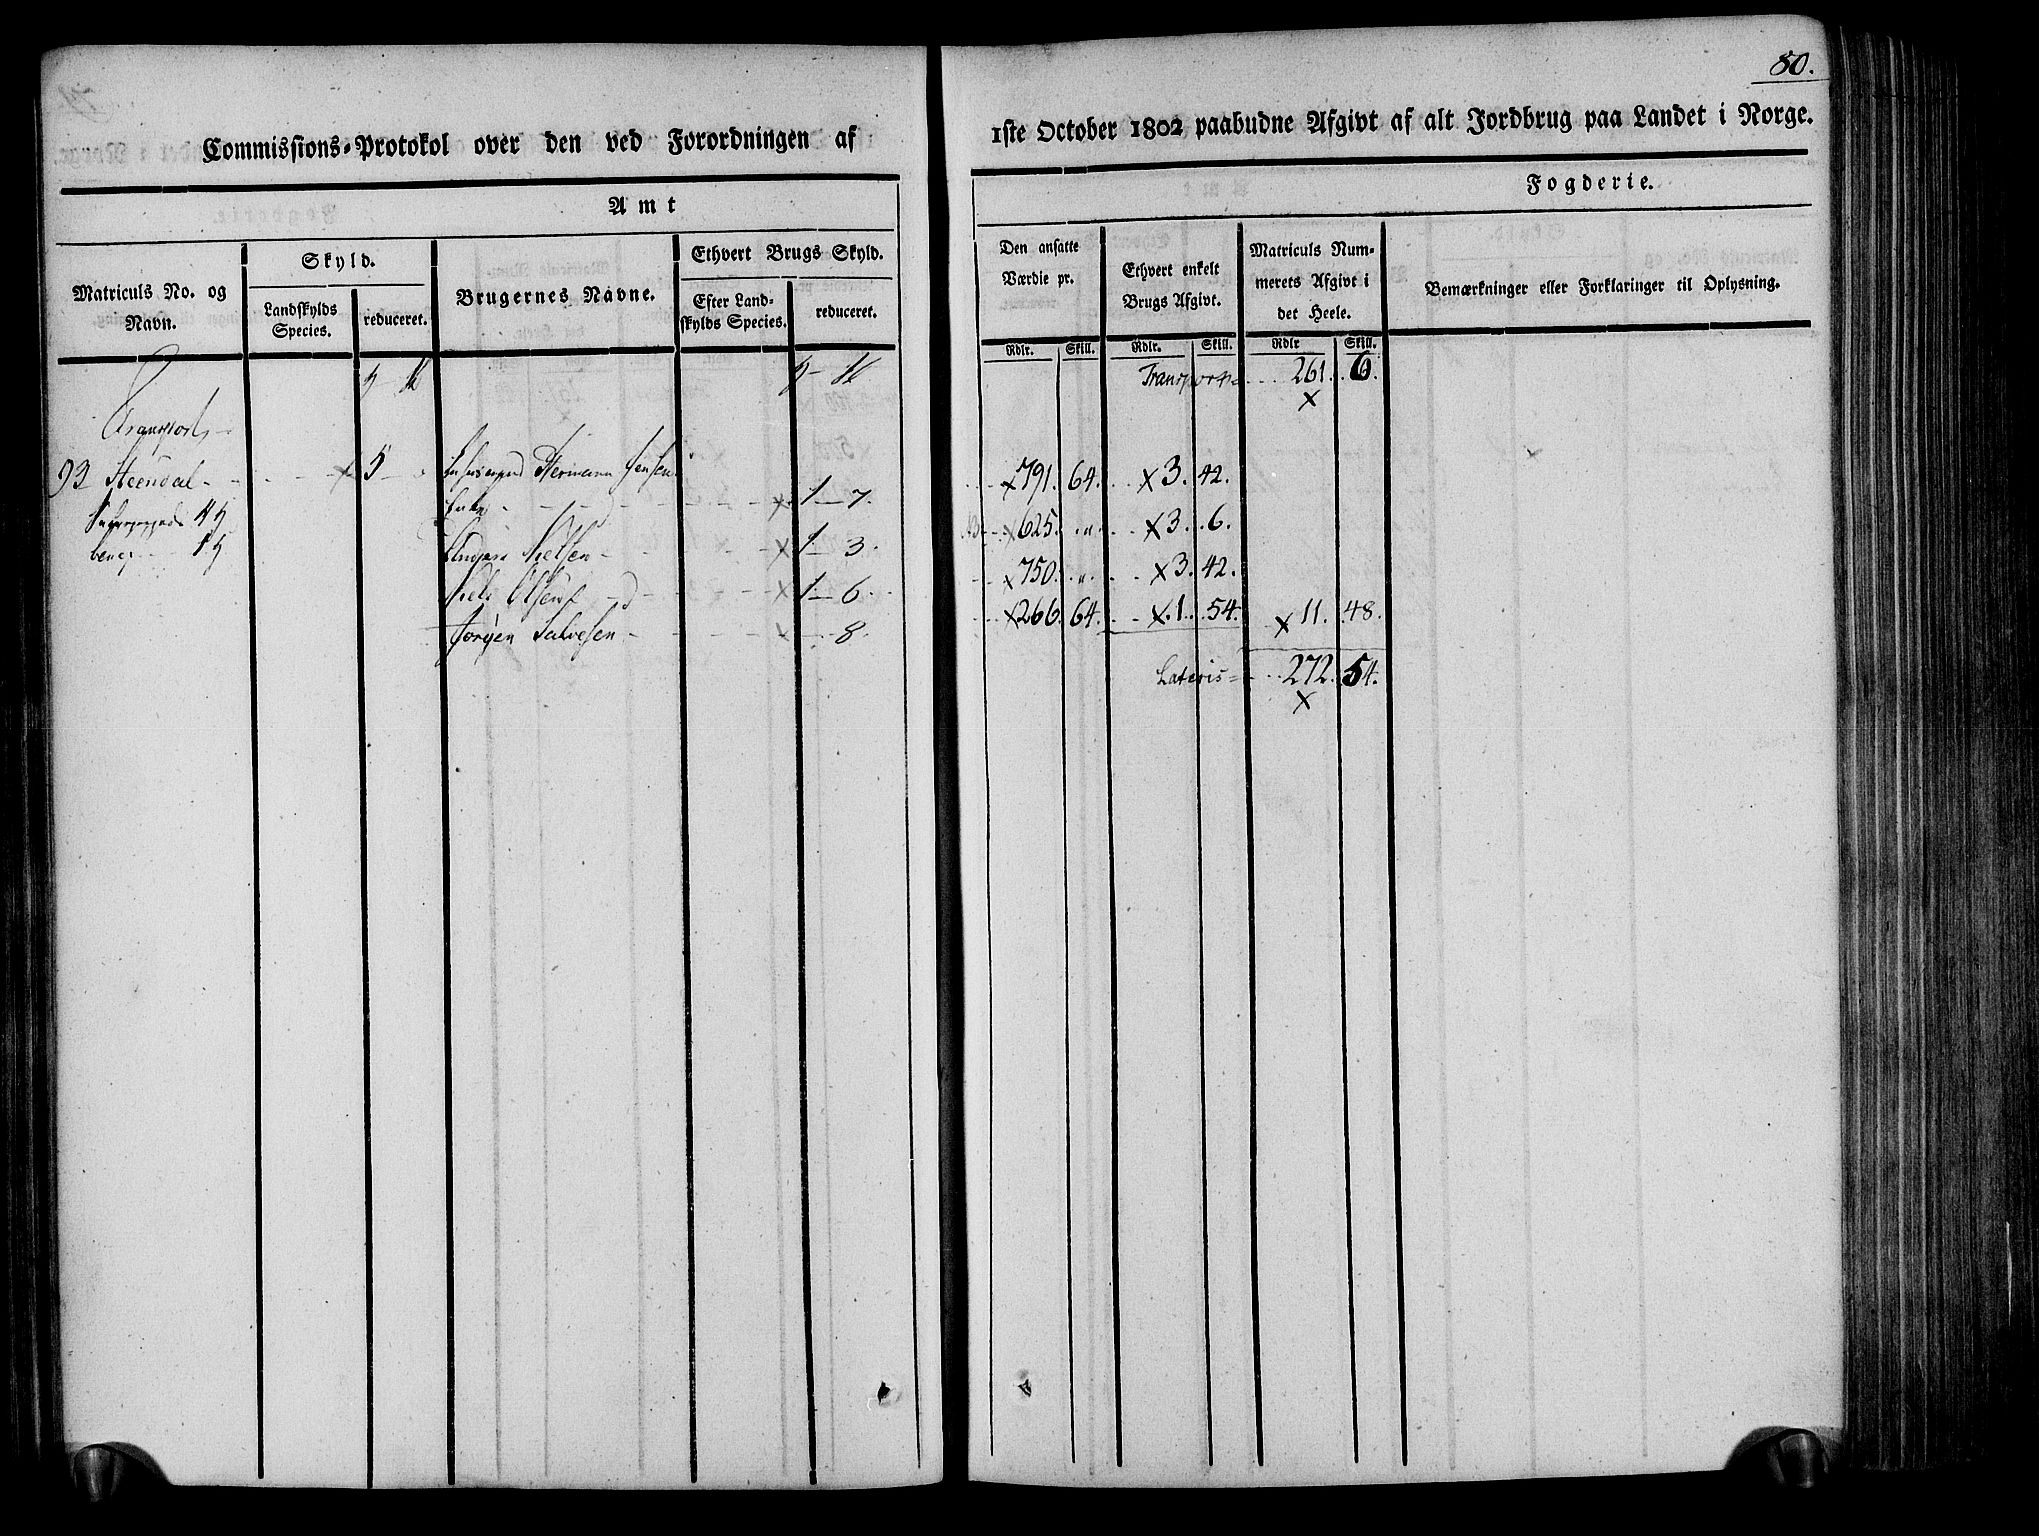 80.
Commissions-Protokol over den ved Forordningen af
1ste October 1802 paabudne Afgivt af alt Jordbrug paa Landet i Norge.
Amt
Fogderie.
Matriculs No. og Navn.
Skyld.
Landskylds Species.
reduceret.
Brugernes Navne.
Ethvert Brugs Skyld.
Efter Landskylds Species.
reduceret.
Den ansatte Værdie pr.
Ethvert enkelt Brugs Afgivt.
Matriculs Nummerets Afgivt i det Heele.
Bemærkninger eller Forklaringer til Oplysning.
Rdlr. Skill. Rdlr. Skill. Rdlr Skill.
Transport 261. 6.
x
Transport
93 Steendal x 5 Hermann Jensens x 791. 64. x 3. 42.
Enke x 1 - 7. x 625. " x 3. 6.
Nielsen x 1 - 3. x 750. " x 3. 42.
Niels Olsen x 1 - 6. x 266 64. x 1. 54. x 11. 48.
Jørgen Salvesen x - 8.
Lateris 272. 54.
x